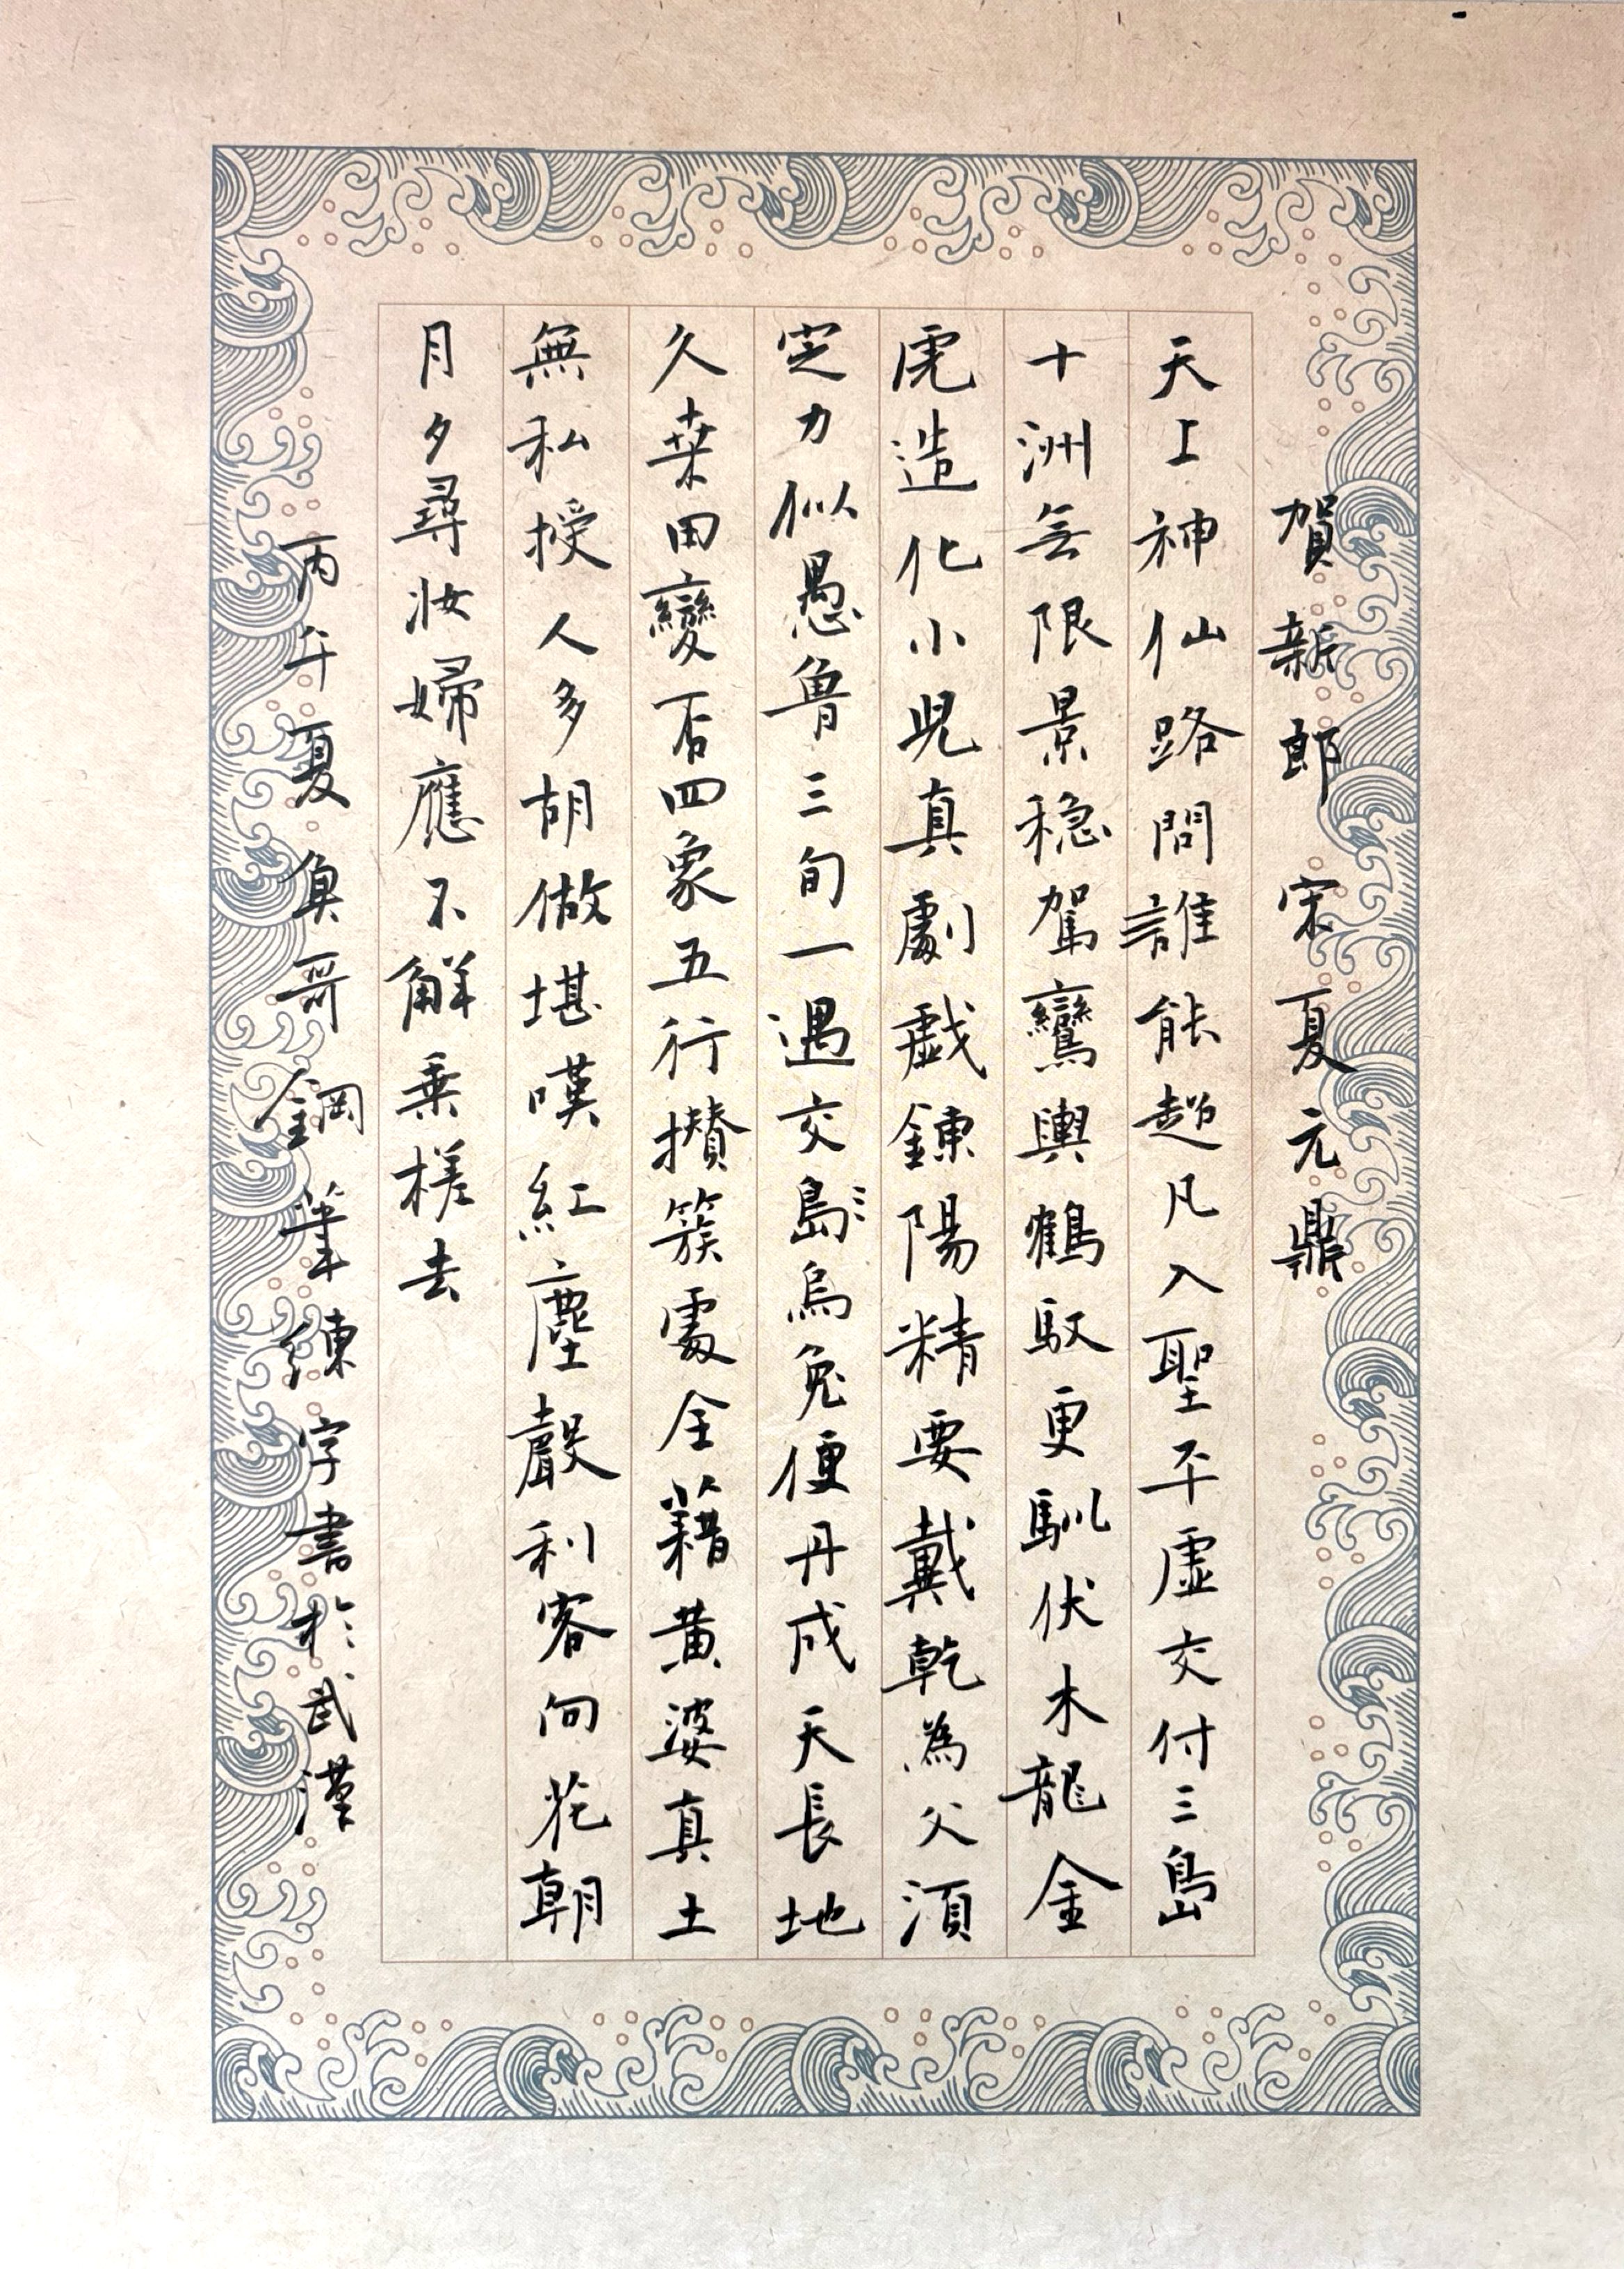 賀新郎 宋 夏元鼎
天上神仙路問誰能超凡入聖平虛交付三島
十洲無限景穩駕鸞輿鶴馭更馴伏木龍金
虎造化小兒真劇戲鍊陽精要戴乾為父須
定力似愚魯三旬一遇交島烏兔便丹成天長地
久桒田變否四象五行攅簇處全藉黃婆真土
無私授人多胡做堪嘆紅塵聲利客向花朝
月夕尋妝婦應不解乘槎去
丙午夏魚哥鋼筆練字書於武漢